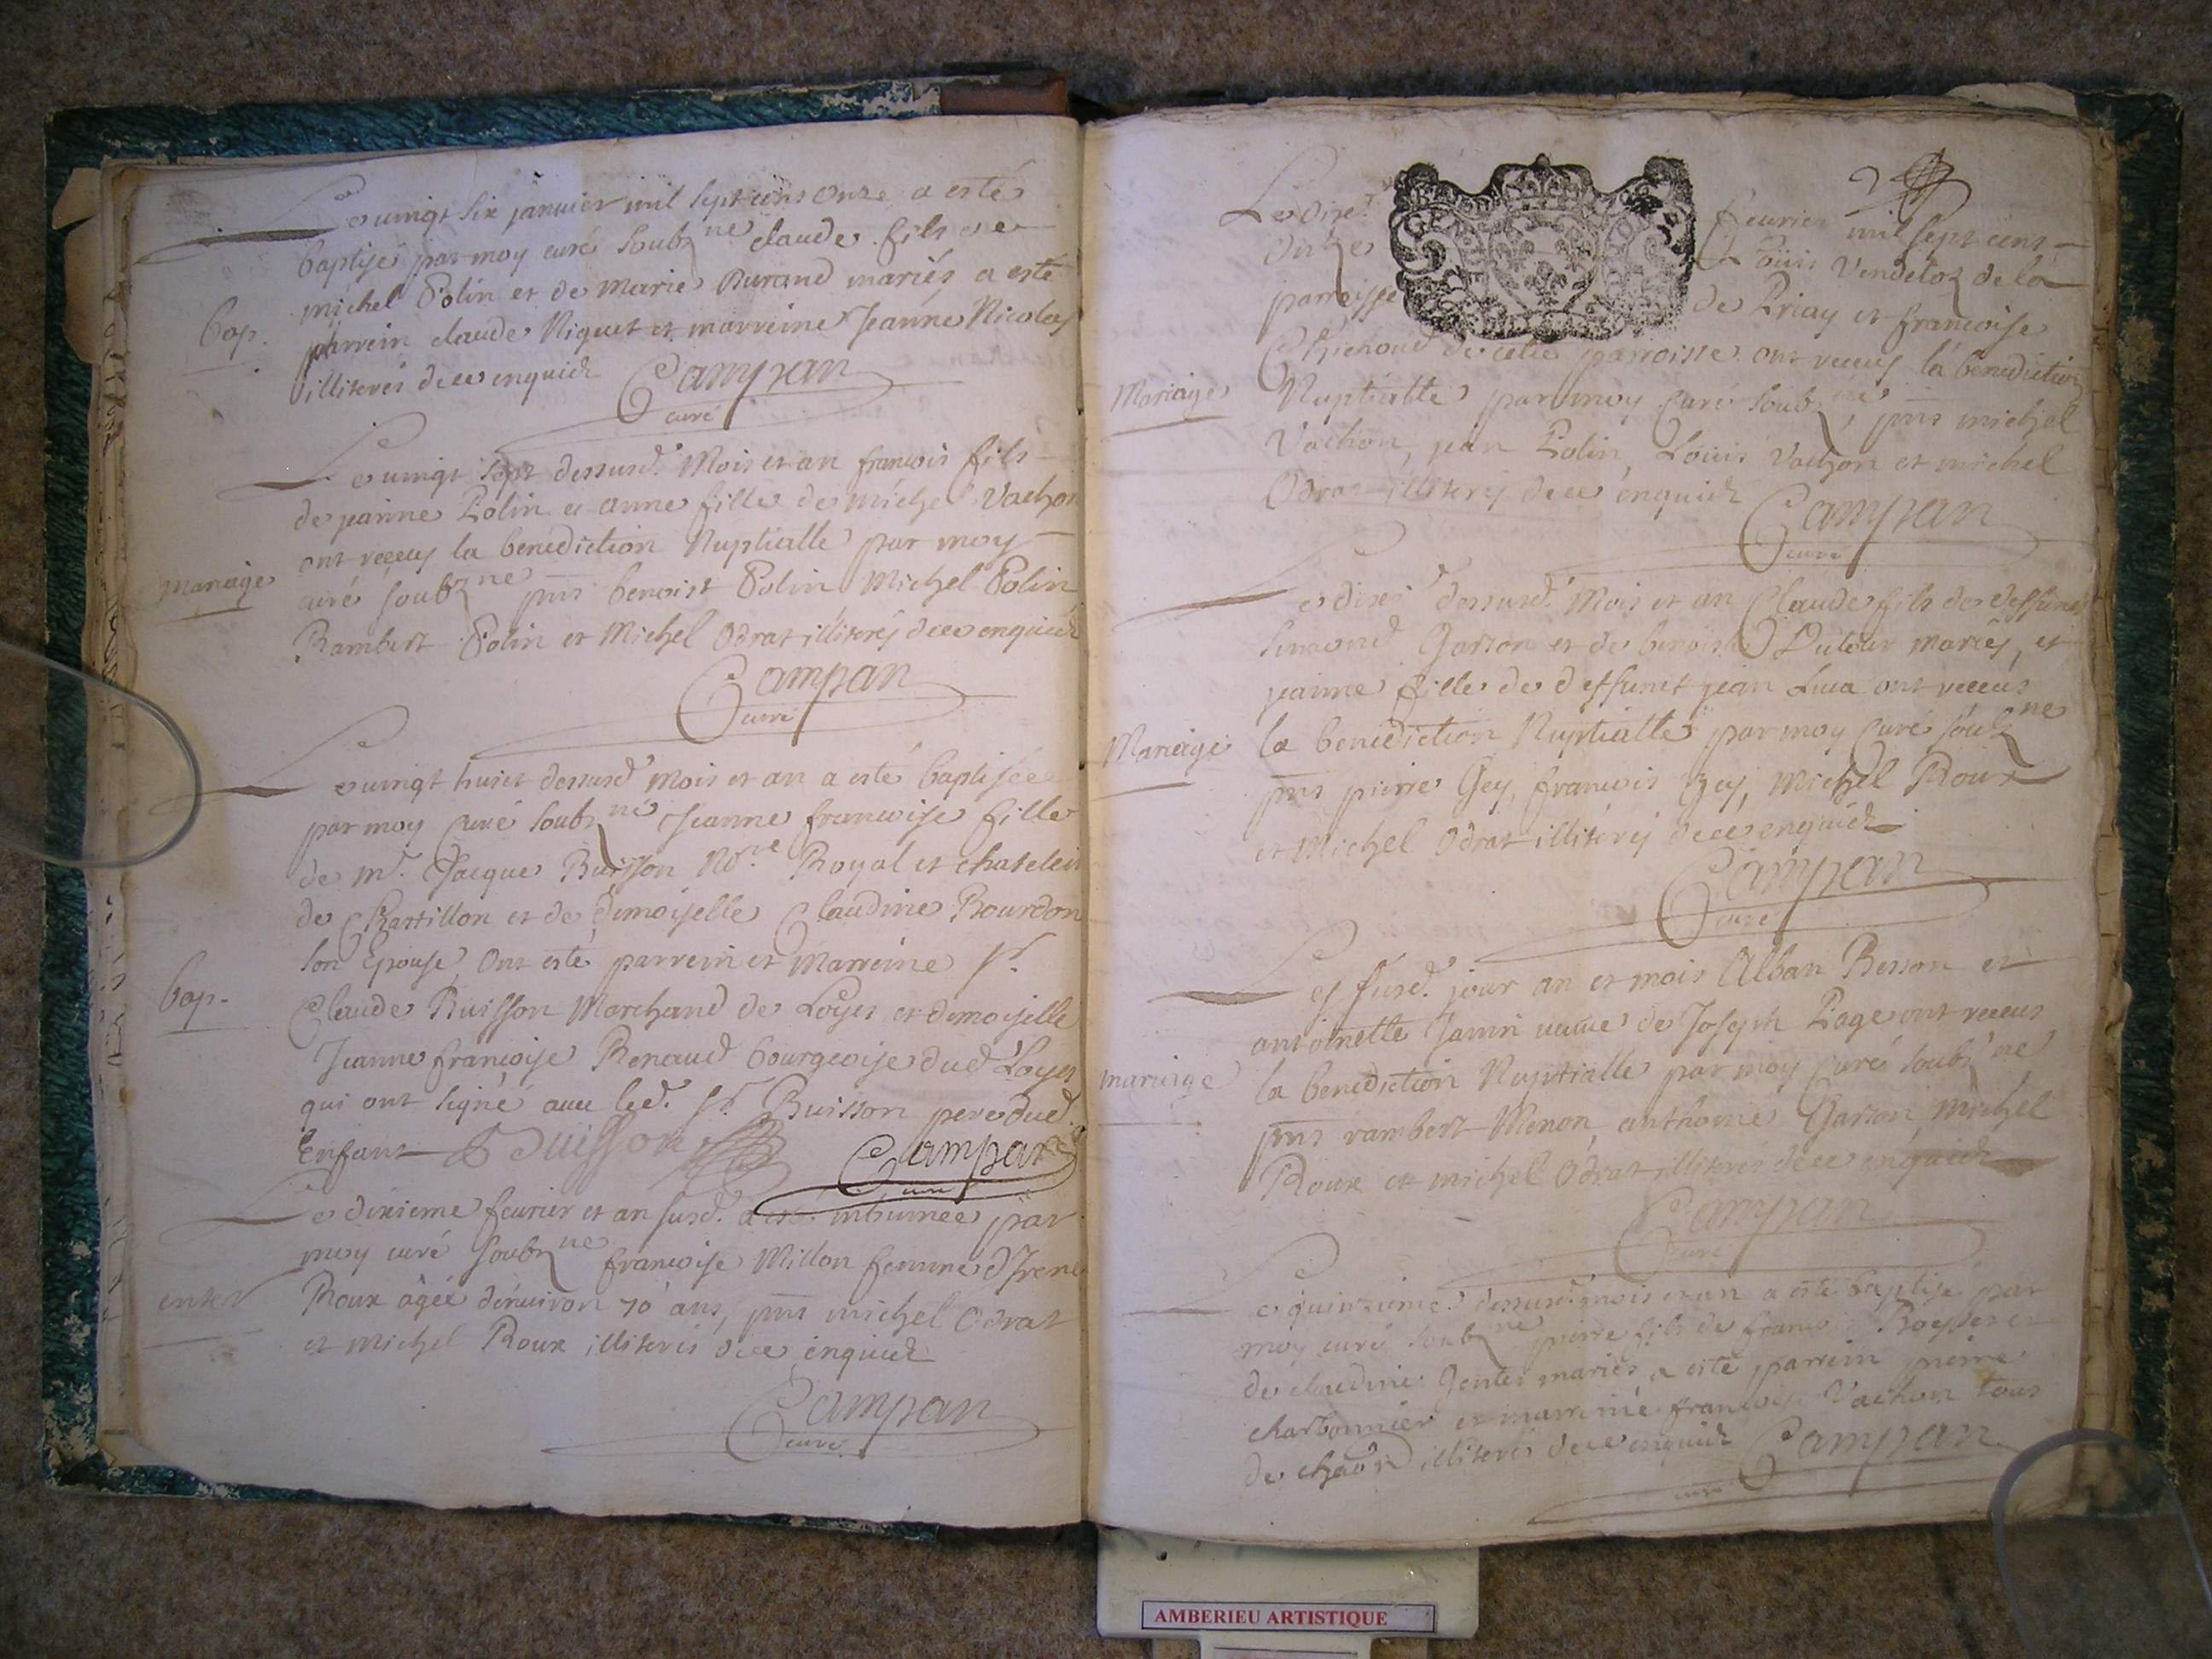 Le vingt six janvier mil sept cens onze a esté
baptisé par moy curé soubz.ne claude fils de
michel Polin et de Marie Durand mariés a esté
Bap.
parrein claude Niquet et marreine Jeanne Nicolas
illiterés de ce enquich
Campan
curé
Le vingt sept dessusd. Mois et an françois fils
de jeanne Polin et anne fille de michel Vachon
ont receus la benediction Nuptialle par moy
Mariage
curé soubz.ne pns benoist Polin Michel Polin
Rambert Polin et Michel Odrat illiterés de ce enquich
Campan
curé
Le vingt huict dessusd. Mois et an a esté baptisée
par moy Curé soubz.ne Jeanne francoise fille
de mr. Jacque Buisson No.re Royal et chatelein
de Chastillon et de demoiselle Claudine Bourdon
son Epouse, Ont esté parrein et Marreine sr.
Bap.
Claude Buisson Marchand de Loyes et demoiselle
Jeanne francoise Renaud bourgeoise dud. Loyes
qui ont signé avec led. sr. Buisson pere dud.
Enfant Buisson Campan
curé
Le dixieme fevrier et an susd. a esté inhumée par
moy curé soubz.ne francoise Millon femme d'Irené
enter
Roux âgée d'environ 70 ans, pns michel Odrat
et Michel Roux illiterés de ce enquich
Campan
curé
2
Le dixe. fevrier mil sept cens
onze Louis Vendeloz de la
parroisse de Priay et francoise
Chienoud de cette parroisse ont receus la benediction
Mariage
Nuptialle par moy Curé soubz.ne, pns michel
Vachon, jean Polin, Louis Vachon et michel
Odrat illiterés de ce enquich
Campan
curé
Le dixe. dessusd. Mois et an Claude fils de deffunct
Garson et de benoiste mariés, et
jeanne fille de deffunct jean Luca ont receus
Mariage
la benediction Nuptialle par moy Curé soubz.ne
pns pierre Gey, francois Gey, Michel Roux
et Michel Odrat illiterés de ce enquich
Campan
curé
Les susd. jour an et mois Alban Besson et
antoinette Janin veuve de Joseph Page ont receus
mariage
la benediction Nuptialle par moy Curé soubz.ne
pns rambert Menon, anthoine Garson, michel
Roux et michel Odrat illiterés de ce enquich
Campan
curé
Le quinzieme dessusd. mois et an a esté baptisé par
moy curé soubz.ne pierre fils de francois
de claudine Gentes mariés, a esté parrein pierre
charbonnier et marreine francoise Vachon tous
de illiterés de ce enquich Campan
curé
AMBERIEU ARTISTIQUE